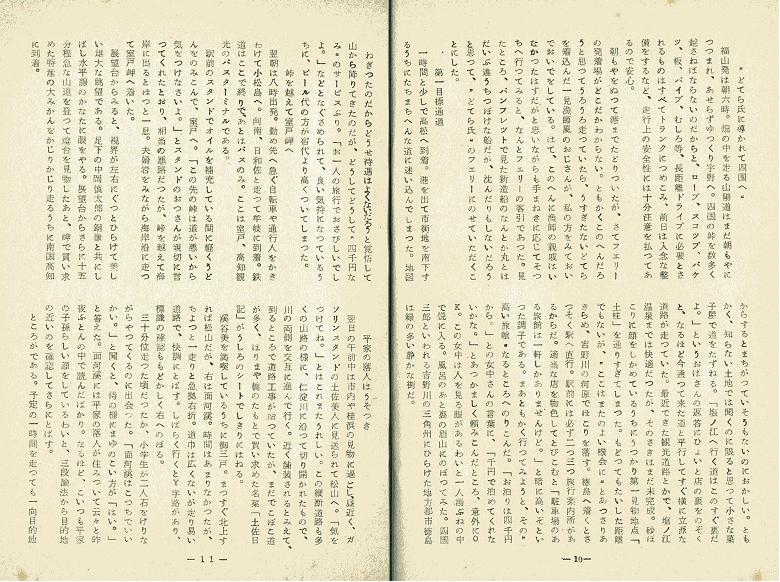 〝どてら氏に導かれて四国へ〟
福山発は朝六時。畑の中を走る山陽道はまだ朝もやに
つつまれ、あせらずゆっくり宇野へ。四国の峠を数多く
起さねばならないのだからと、ロープ、スコップ、バケ
ツ、板、パイプ、むしろ等、長距離ドライブに必要とさ
れるものはすべてトランクにつめこみ、前日は入念な整
備をするなど、走行上の安全性には十分注意を払ってあ
るので安心。
朝もやをぬって港までたどりついたが、さてフェリー
の発着場がどこだかわからない。ともかくこのへんだろ
うと思ってうろうろ走っていたら、うすぎたないどてら
を着込んだ一見漁師風のおじさんが、私の方をみておい
でおいでをしている。はて、このへんに漁師の親戚はい
なかったはずだがと思いながらも手まねきに応じてそっ
ちへ行ってみると、なんとフェリーの客引であった。見
たところ、パンフレットで見た新造船のなんとか丸とは
だいぶ違うちっぽけな船だが、沈んだりもしないだろう
と思って、〝どてら氏〟のフェリーにのせていただくこ
とにした。
第一目標通過
一時間と少しで高松へ到着。港を出て市街地を南下す
るうちにたちまちへんな道に迷い込んでしまった。地図
からするとまちがっていそうもないのにおかしい。とも
かく、知らない土地では聞くのに限ると思って小さな菓
子屋で道をたずねる。「塩ノ江へ行く道はこのすぐ裏だ
よ。」というおばさんの返答にひょいと店の裏をのぞく
と、なるほど今通って来た道と平行してすぐ横に立派な
道路が走っていた。最近できた観光道路とかで、塩ノ江
温泉までは快適だったが、そのさきはまだ未完成。砂ぼ
こりに顔をしかめているうちにうっかり第一見物地点「
土柱」を通りすぎてしまった。もどってもたいした距離
でもないが、〝ここはまたのよい機会に〟とあっさりあ
きらめ、吉野川の河原でほこりを落す。徳島へ着くとさ
っそく駅へ直行。駅前には必ず二つ三つ旅行案内所があ
るからだ。適当な店を物色してとびこむと「駐車場のあ
る旅館は一軒しかありませんけど。」と暗に高いぞとい
った調子である。まあともかく行ってみようと、その〝
高い旅館〟なるところへのりこんだ。「お泊りは四千円
から。」との女中さんの言葉に、「千円で泊めてくれな
いかな。」とあつかましく頼みこんだところ、意外にO
K。この女中は人を見る眼があるわいと一人湯ぶねの中
で悦に入る。風呂のあと裏の眉山にのぼってみる。四国
三郎といわれる吉野川の三角州にひらけた地方都市徳島
は緑の多い静かな街だ。
— 10 —
わざったのだからどうせ待遇はよくないだろうと覚悟して
山から降りてきたのだが、どうしてどうして〝四千円な
み〟のサービスぶり。「お一人の旅行でおさびしいでし
ょ。」などとなぐさめられて、良い気持になっているう
ちに、ビール代の方が宿代より高くついてしまった。
峠を越えて室戸岬へ
翌朝は八時出発。勤め先へ急ぐ自転車や通行人をかき
わけて小松島へ。阿南、日和佐と走って牟岐に到着。鉄
道はここで終りで、あとはバスのみ。ここは室戸、高知観
光のバスターミナルである。
駅前のスタンドでオイルを補充している間に軽くうど
んをのみこんで、室戸へ。「この先の峠は道が悪いから
気をつけなさいよ。」とスタンドのおっさんが親切に言
ってくれたとおり、相当の悪路だったが、峠を越えて海
岸に出るとほっと一息。夫婦岩をみながら海岸沿に走っ
て室戸岬へ着いた。
展望台からみると、視界が左右にぐっとひらけて美し
い雄大な眺望である。足下の中岡慎太郎の銅像と共にし
ばし水平線のかなたに眼をやる。展望台からさらに十五
分程急な山道を登って燈台を見物したあと、岬で買い求
めた特産の大みかんをかじりかじり走るうちに南国高知
に到着。
平家の落人はうそつき
翌日の午前中は市内や桂浜の見物に過ごし、昼近く、ガ
ソリンスタンドの土佐美人に見送られて松山へ。「気を
つけてね。」とはこれまたうれしい。この縦断道路も多
くの山路の様に、仁淀川に沿って切り開かれたもので、
川の両側を交互に進んで行く。近く舗装されるとみえて、
到るところで道路工事が始っていたが、まだでこぼこ道
が多く、はりまや橋のたもとで買い求めた名菓「土佐日
記」がうしろのシートでしきりにはねる。
溪谷美を満喫しているうちに御三戸。まっすぐ北上す
れば松山だが、右は面河溪。時間はあまりなかったが、
ちょっと走りと急拠右折。道巾は広くないが走り易い
道路で、快調にとばす。しばらく行くとY字路があり、
標識の確認ももどかしく右へのぼる。
三十分位走った頃だったか、小学生が二人石をけりな
がらやってくるのに出会った。「面河溪はこっちでいい
かい。」と聞くと、侍の様にまゆのこい方が「はい。」
と答えた。面河溪には平家の落人が住みついて云々と昨
夜ふとんの中で読んだばかり。なるほど、こいつも平家
の子孫らしい顔をしているわいと、三段論法から目的地
の近いのを確認してさらにとばす。
ところがである。予定の一時間を走っても一向目的地
— 11 —